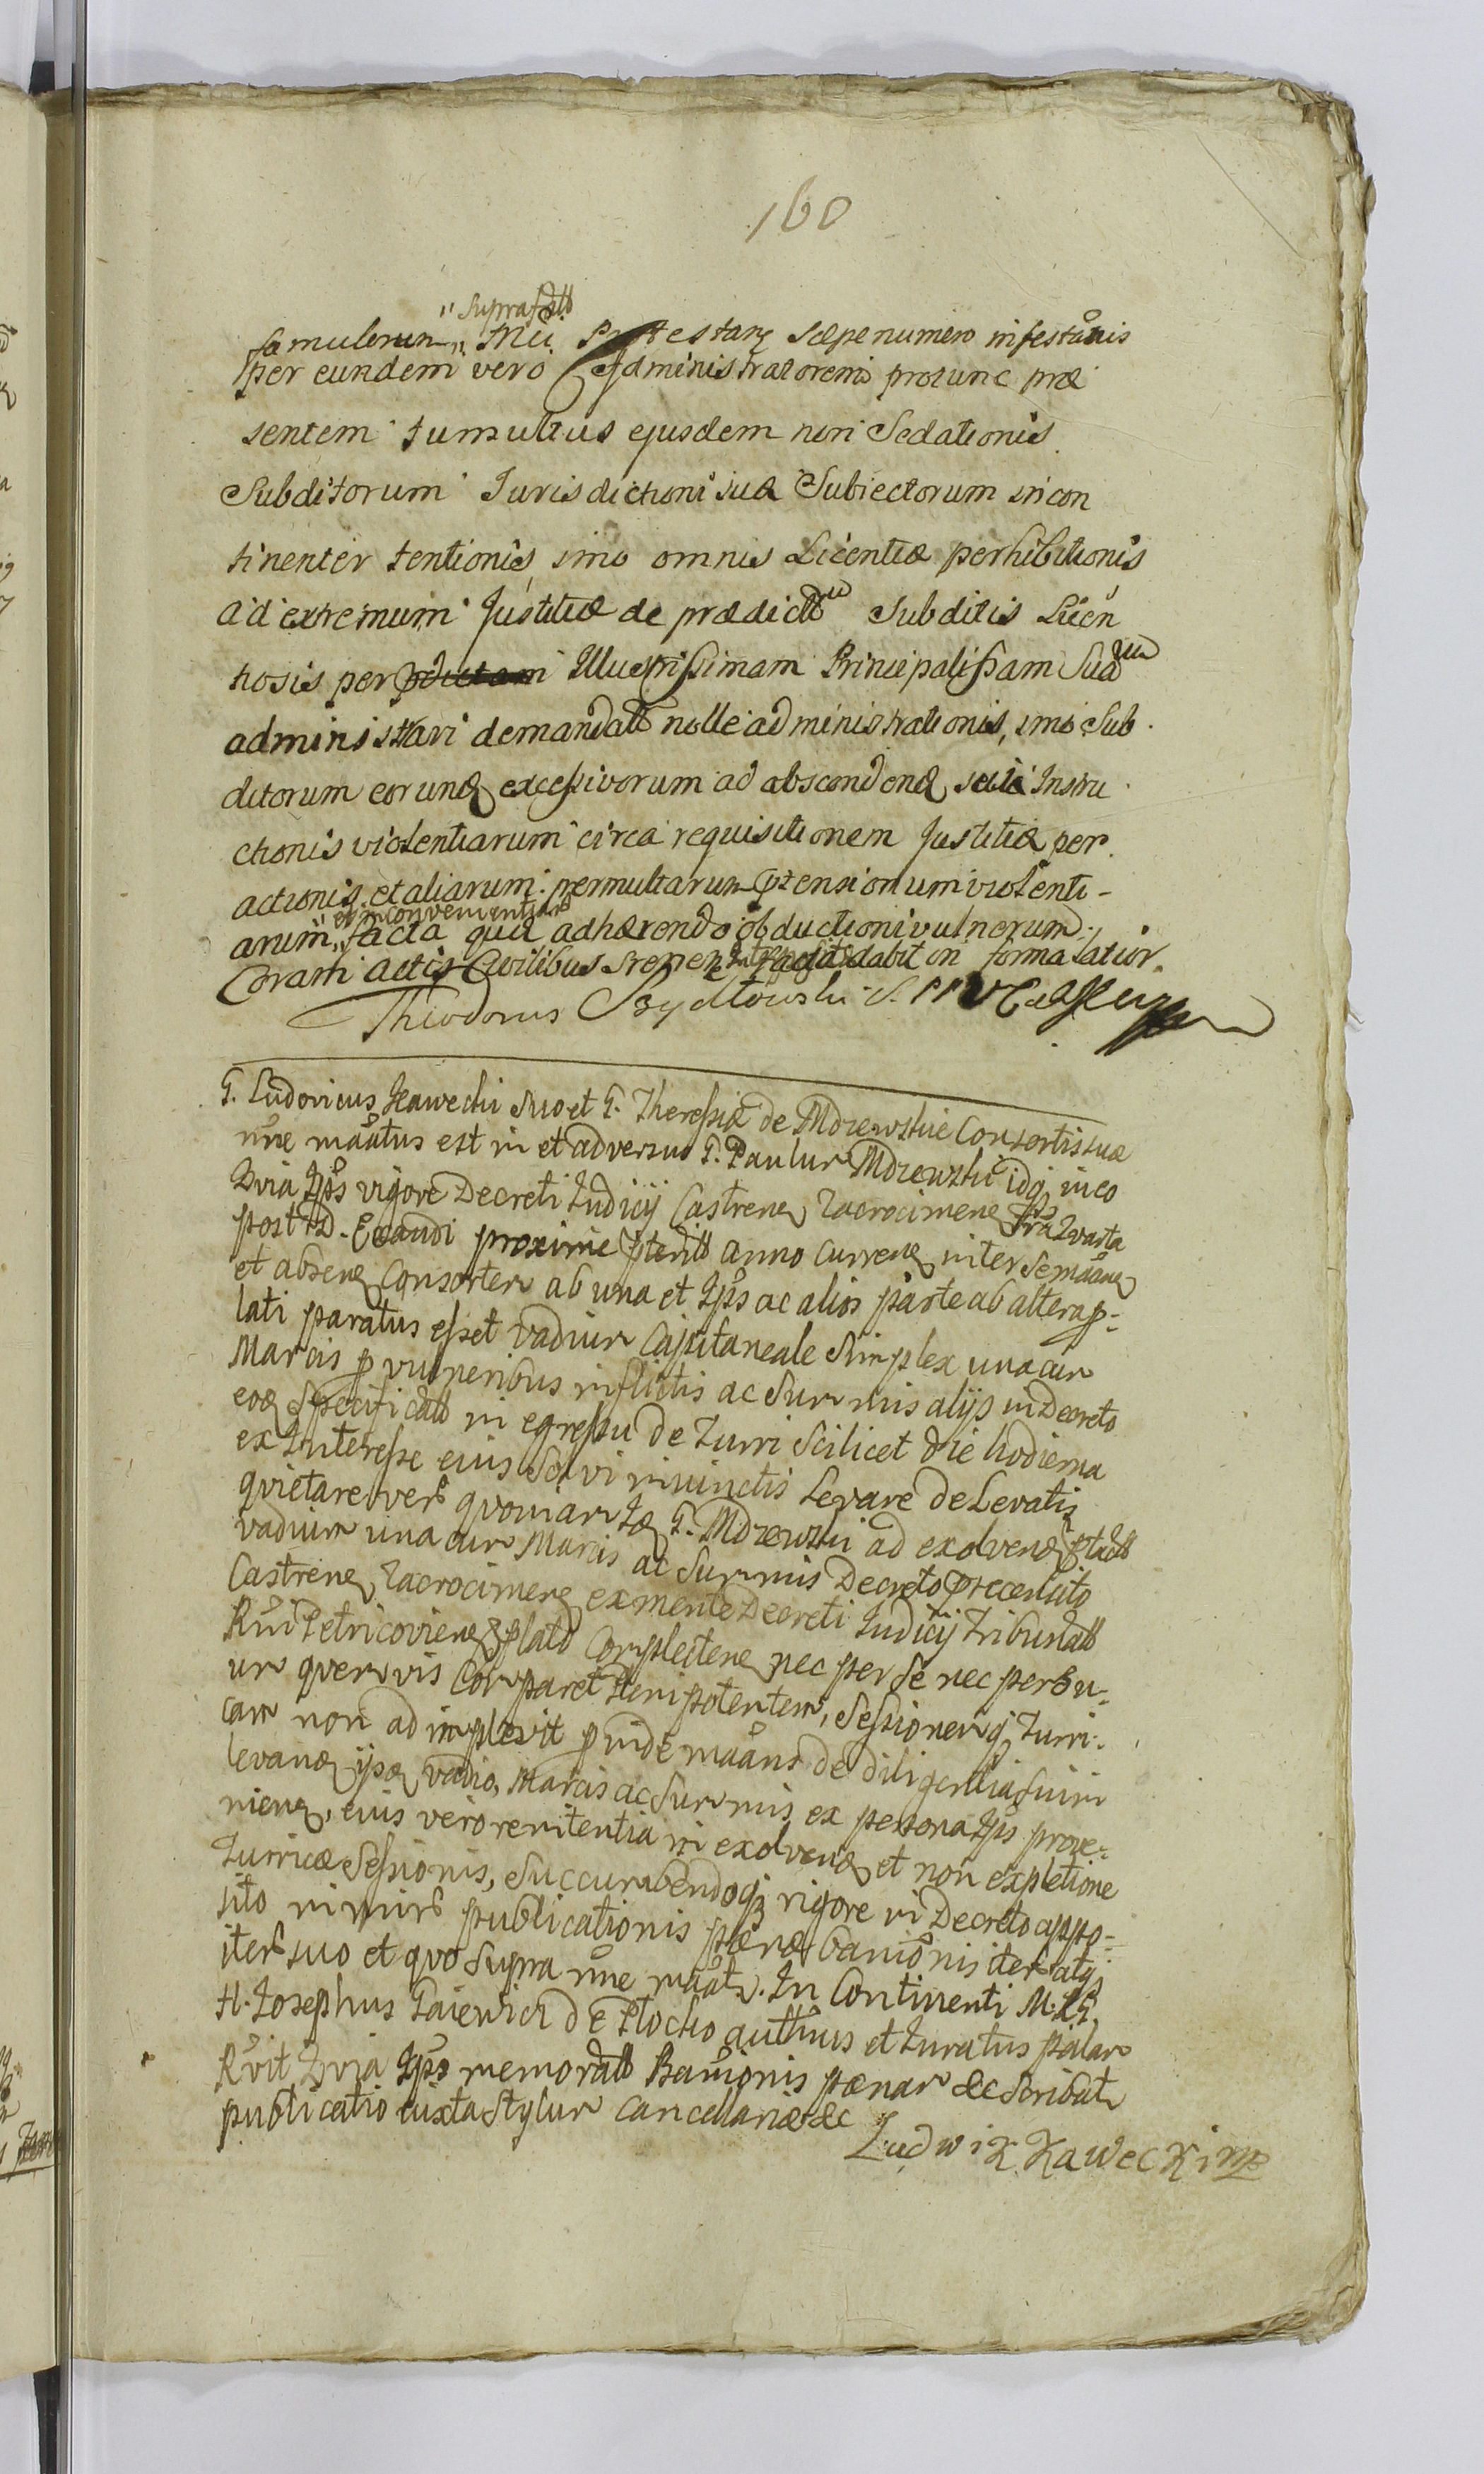 160
"Suprafatt
famulorum " Mei Protestang Sæpenumero infestanis
per eundem vero Administratorem protunc præ
sentem tumultus ejusdem non Sedationis
Subditorum Jurisdictioni suæ Subiectorum incon
tinenter tentionis, imo omnis Licentiæ perhibitionis
ad extremum Justitiæ de prædictt Subditis Licen
tiosis per Illustrissimam Principalissam Suam
administrari demandatt nolle administrationis, imo Sub
ditorum eorund excessivorum ad abscondend Instru
ctionis violentiarum circa requisitionem Justitiæ per
actionis et aliarum permultarum ptensionum violenti-
" et inconvenientiar
arum " facta qua adhærendo obductioni vulnerum
Coram actis Civilibus dabit in forma latior.
Theodorus Szydłowski
G. Ludovicus Kawecki Suo et G. Theressiæ de Mdzewskie Consortis suæ
nne maatus est in et adversus G. Paulum Mdzewski idq in eo
Quia Ips vigore Decreti Judicij Castren Zacrocimen fria Quarta
post D. Exaudi proxime pterit anno Curren inter Semaan
et absen Consortem ab una et Ips ac alios parte ab altera p-
lati paratus esset vadium Capitaneale Simplex una cum
Marcis p vulneribus inflictis ac Summis alijs in Decreto
eod Specificatt in egressu de Turri Scilicet die hodierna
ex Interesse eius Solvi iniunctis Levare de Levatis
quietare vero quoniam Id G. Mdzewski ad exolvend ptactt
vadium una cum Marcis ac Summis Decreto præcensito
Castren Zacrocimen ex mente Decreti Judicij Tribunatt
Rni Petricovien plato Complecten nec per Se nec per Su-
um quemvis Comparet plenipotentem, Sessionemq Turri-
cam non adimplevit pinde maans de diligentia Sui in
levand ijsd vadio, Marcis ac Summis ex persona Ips prove-
nien, eius vero renitentia in exolvend et non expletione
Turricæ Sessionis, Succumbendoq rigore in Decreto appo-
sito nimirum publicationis pænæ Banionis iter atq
iter suo et quo Supra nne maat. In Continenti M. R. G.
H. Josephus Gaiewski de Płocko authus et Juratus palam
Rvit Quia Ips memoratt Banionis pænam &c Scribat
publicatio iuxta Stylum Cancellariæ &c
Ludwik Kawecki mp